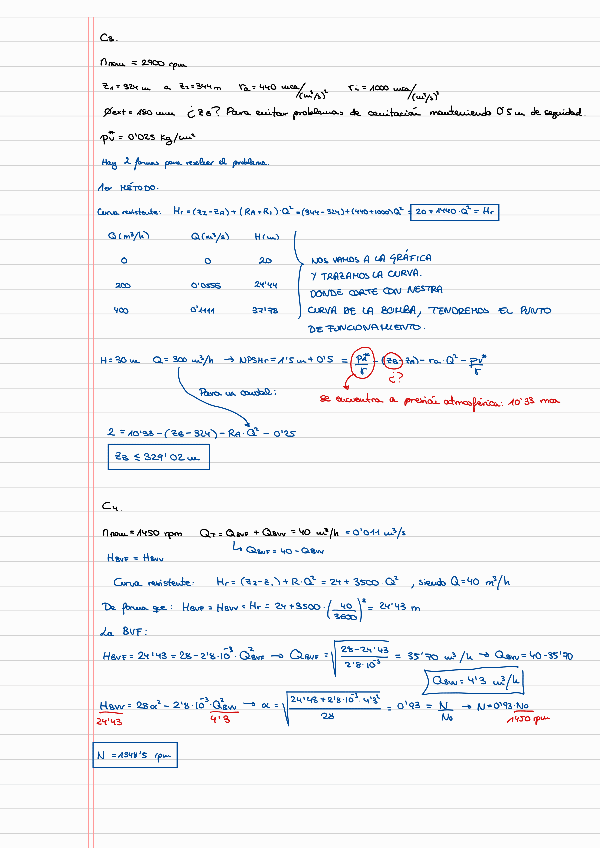 C3.
nnom = 2900 rpm
z1 = 324 m a z2 = 344 m ra = 440 mca/(m³/s)² ri = 1000 mca/(m³/s)²
Øext = 180 mm ¿ZB? Para evitar problemas de cavitación manteniendo 0'5 m de seguridad.
pv* = 0'025 kg/cm²
Hay 2 formas para resolver el problema.
1er MÉTODO.
Curva resistente: Hr = (z2 - zA) + (RA + RI) · Q² = (344 - 324) + (440 + 1000)Q² = 20 + 1440 · Q² = Hr
Q (m³/h) Q (m³/s) H (m)
0 0 20
200 0'0555 24'44
400 0'1111 37'78
NOS VAMOS A LA GRÁFICA
Y TRAZAMOS LA CURVA.
DONDE CORTE CON NESTRA
CURVA DE LA BOMBA, TENDREMOS EL PUNTO
DE FUNCIONAMIENTO.
H = 30 m Q = 300 m³/h → NPSHr = 1'5 m + 0'5 = PA*/γ - (ZB - ZA) - ra · Q² - Pv*/γ
¿?
Para un caudal:
se encuentra a presión atmosférica: 10'33 mca
2 = 10'33 - (ZB - 324) - RA · Q² - 0'25
ZB ≤ 329'02 m
C4.
nnom = 1450 rpm QT = QBVF + QBVV = 40 m³/h = 0'011 m³/s
↳ QBVF = 40 - QBVV
HBVF = HBVV
Curva resistente: Hr = (z2 - z1) + R · Q² = 24 + 3500 Q², siendo Q = 40 m³/h
De forma que: HBVF = HBVV = Hr = 24 + 3500 · (40/3600)² = 24'43 m
La BVF:
HBVF = 24'43 = 28 - 2'8 · 10⁻³ · Q²BVF → QBVF = √(28 - 24'43 / 2'8 · 10⁻³) = 35'70 m³/h → QBVV = 40 - 35'70
QBVV = 4'3 m³/h
HBVV = 28α² - 2'8 · 10⁻³ · Q²BVV → α = √(24'43 + 2'8 · 10⁻³ · 4'3² / 28) = 0'93 = N/No → N = 0'93 · No
24'43 4'3 1450 rpm
N = 1348'5 rpm